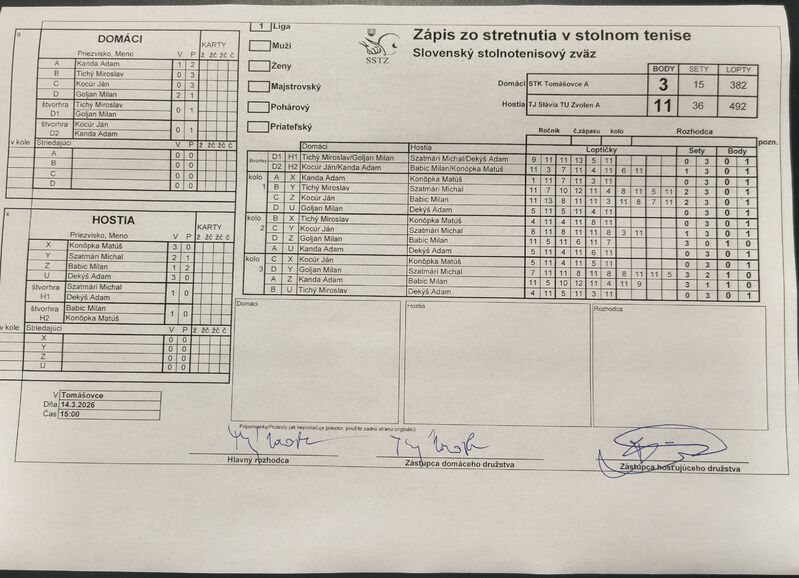 1 Liga
Muži
Ženy
Majstrovský
Pohárový
Priateľský
SSTZ
Zápis zo stretnutia v stolnom tenise
Slovenský stolnotenisový zväz
BODY SETY LOPTY
Domáci STK Tomášovce A 3 15 382
Hostia TJ Slávia TU Zvolen A 11 36 492
a
DOMÁCI
Priezvisko, Meno V P KARTY
ž žč žč č
A Kanda Adam 1 2
B Tichý Miroslav 0 3
C Kocúr Ján 0 3
D Goljan Milan 2 1
štvorhra D1 Tichý Miroslav Goljan Milan 0 1
štvorhra D2 Kocúr Ján Kanda Adam 0 1
v kole Striedajúci V P
A 0 0
B 0 0
C 0 0
D 0 0
x
HOSTIA
Priezvisko, Meno V P KARTY
ž žč žč č
X Konôpka Matúš 3 0
Y Szatmári Michal 2 1
Z Babic Milan 1 2
U Dekýš Adam 3 0
štvorhra H1 Szatmári Michal Dekýš Adam 1 0
štvorhra H2 Babic Milan Konôpka Matúš 1 0
v kole Striedajúci V P
X 0 0
Y 0 0
Z 0 0
U 0 0
V Tomášovce
Dňa 14.3.2026
Čas 15:00
Ročník č.zápasu kolo Rozhodca
Domáci Hostia Loptičky Sety Body pozn.
štvorhry D1 H1 Tichý Miroslav/Goljan Milan Szatmári Michal/Dekýš Adam 9 11 11 13 5 11 0 3 0 1
D2 H2 Kocúr Ján/Kanda Adam Babic Milan/Konôpka Matúš 11 3 7 11 4 11 6 11 1 3 0 1
kolo 1 A X Kanda Adam Konôpka Matúš 1 11 7 11 3 11 0 3 0 1
B Y Tichý Miroslav Szatmári Michal 11 7 10 12 11 4 8 11 5 11 2 3 0 1
C Z Kocúr Ján Babic Milan 11 13 8 11 11 3 11 8 7 11 2 3 0 1
D U Goljan Milan Dekýš Adam 5 11 5 11 4 11 0 3 0 1
kolo 2 B X Tichý Miroslav Konôpka Matúš 4 11 8 11 0 3 0 1
C Y Kocúr Ján Szatmári Michal 8 11 8 11 11 8 3 11 1 3 0 1
D Z Goljan Milan Babic Milan 11 5 11 6 11 7 3 0 1 0
A U Kanda Adam Dekýš Adam 5 11 5 11 4 11 0 3 0 1
kolo 3 C X Kocúr Ján Konôpka Matúš 5 11 4 11 5 11 0 3 0 1
D Y Goljan Milan Szatmári Michal 7 11 11 8 11 8 8 11 11 5 3 2 1 0
A Z Kanda Adam Babic Milan 11 5 10 12 11 4 11 9 3 1 1 0
B U Tichý Miroslav Dekýš Adam 4 11 5 11 3 11 0 3 0 1
Domáci
Hostia
Rozhodca
Pripomienky/Protesty (ak nepostačuje priestor, použite zadnú stranu originálu)
Hlavný rozhodca
Zástupca domáceho družstva
Zástupca hosťujúceho družstva